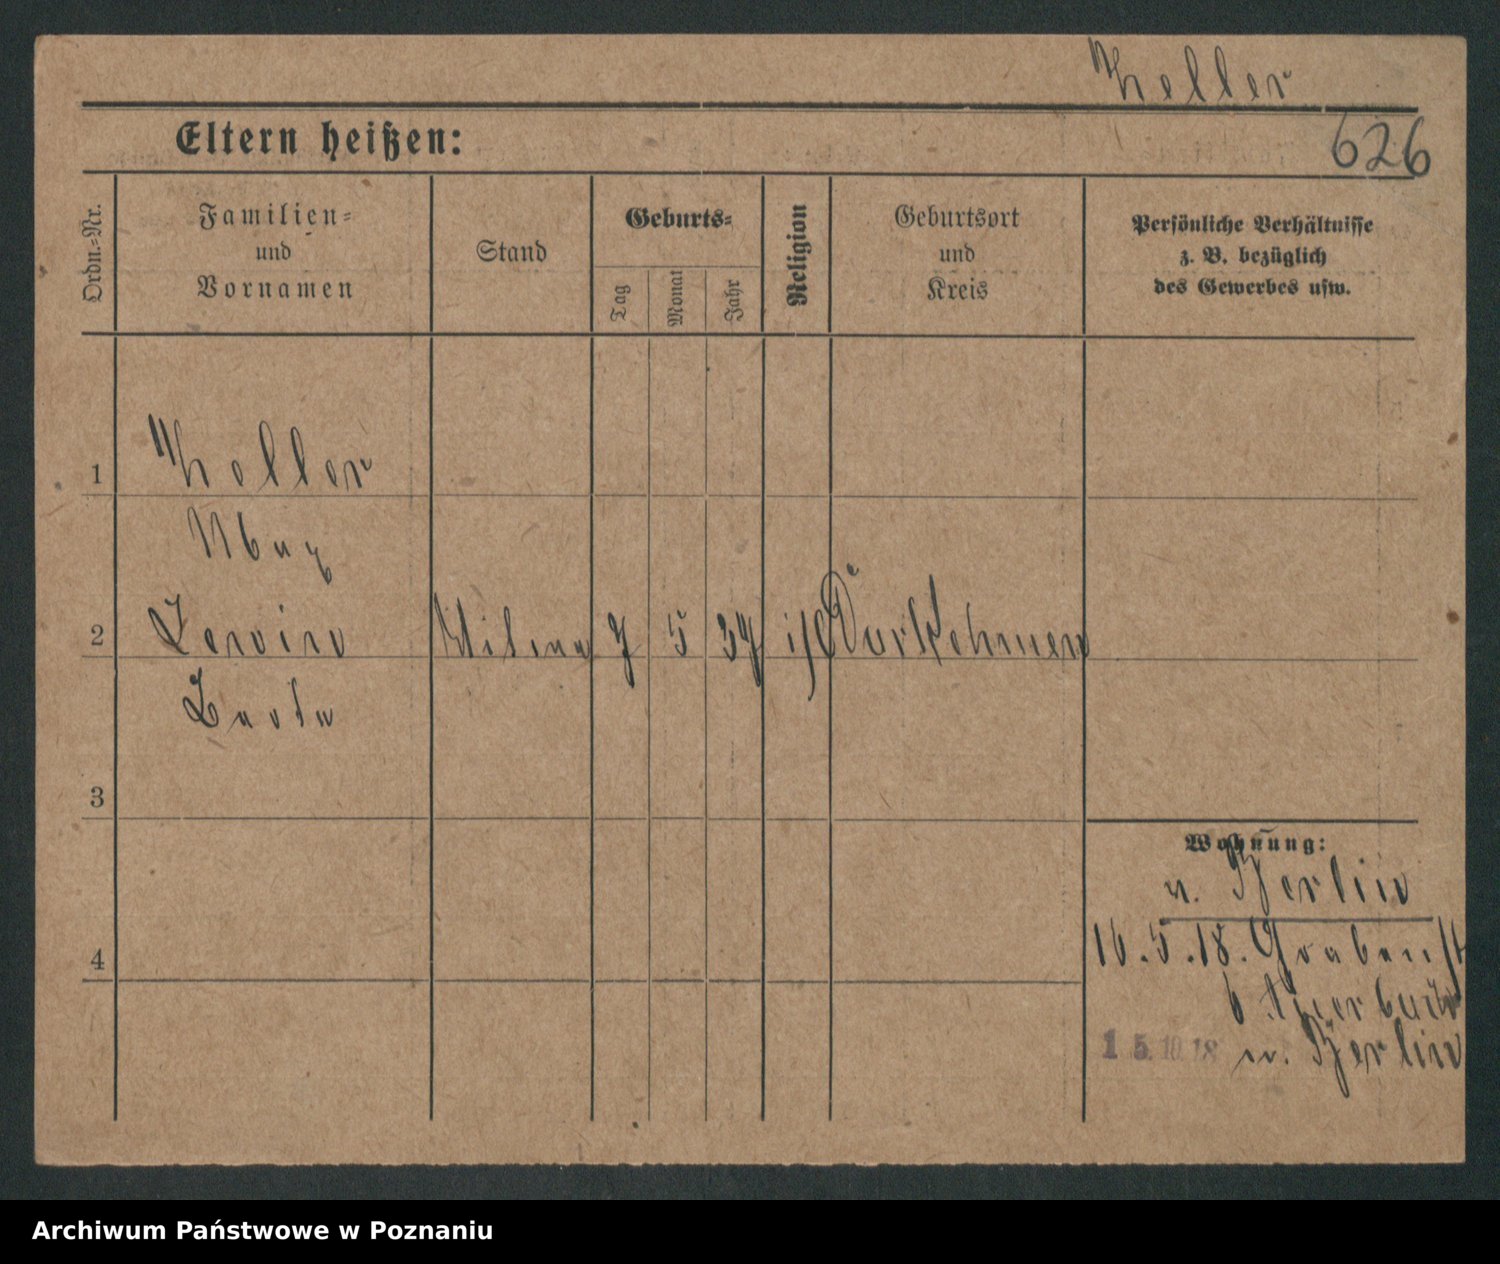 Keller
626
Eltern heißen:
Ordn.-Nr.
Familien-
und
Vornamen
Stand
Geburts-
Tag
Monat
Jahr
Religion
Geburtsort
und
Kreis
Persönliche Verhältnisse
z. B. bezüglich
des Gewerbes usw.
1 Keller
2 Witwe 7 5 37 Darkehmen
3
4
Wohnung:
v. Berlin
16.5.18. Grabenst
6 b. Auerbach
15.10.18 n. Berlin
Archiwum Państwowe w Poznaniu